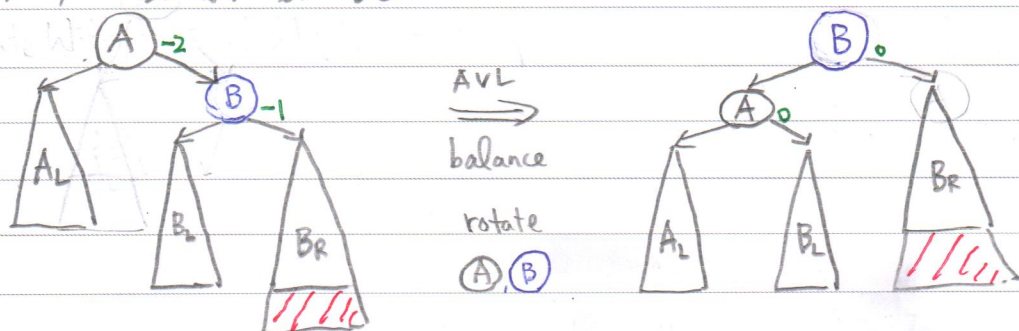 A -2
B -1
A_L
B_L
B_R
AVL
balance
rotate
A, B
B 0
A 0
A_L
B_L
B_R